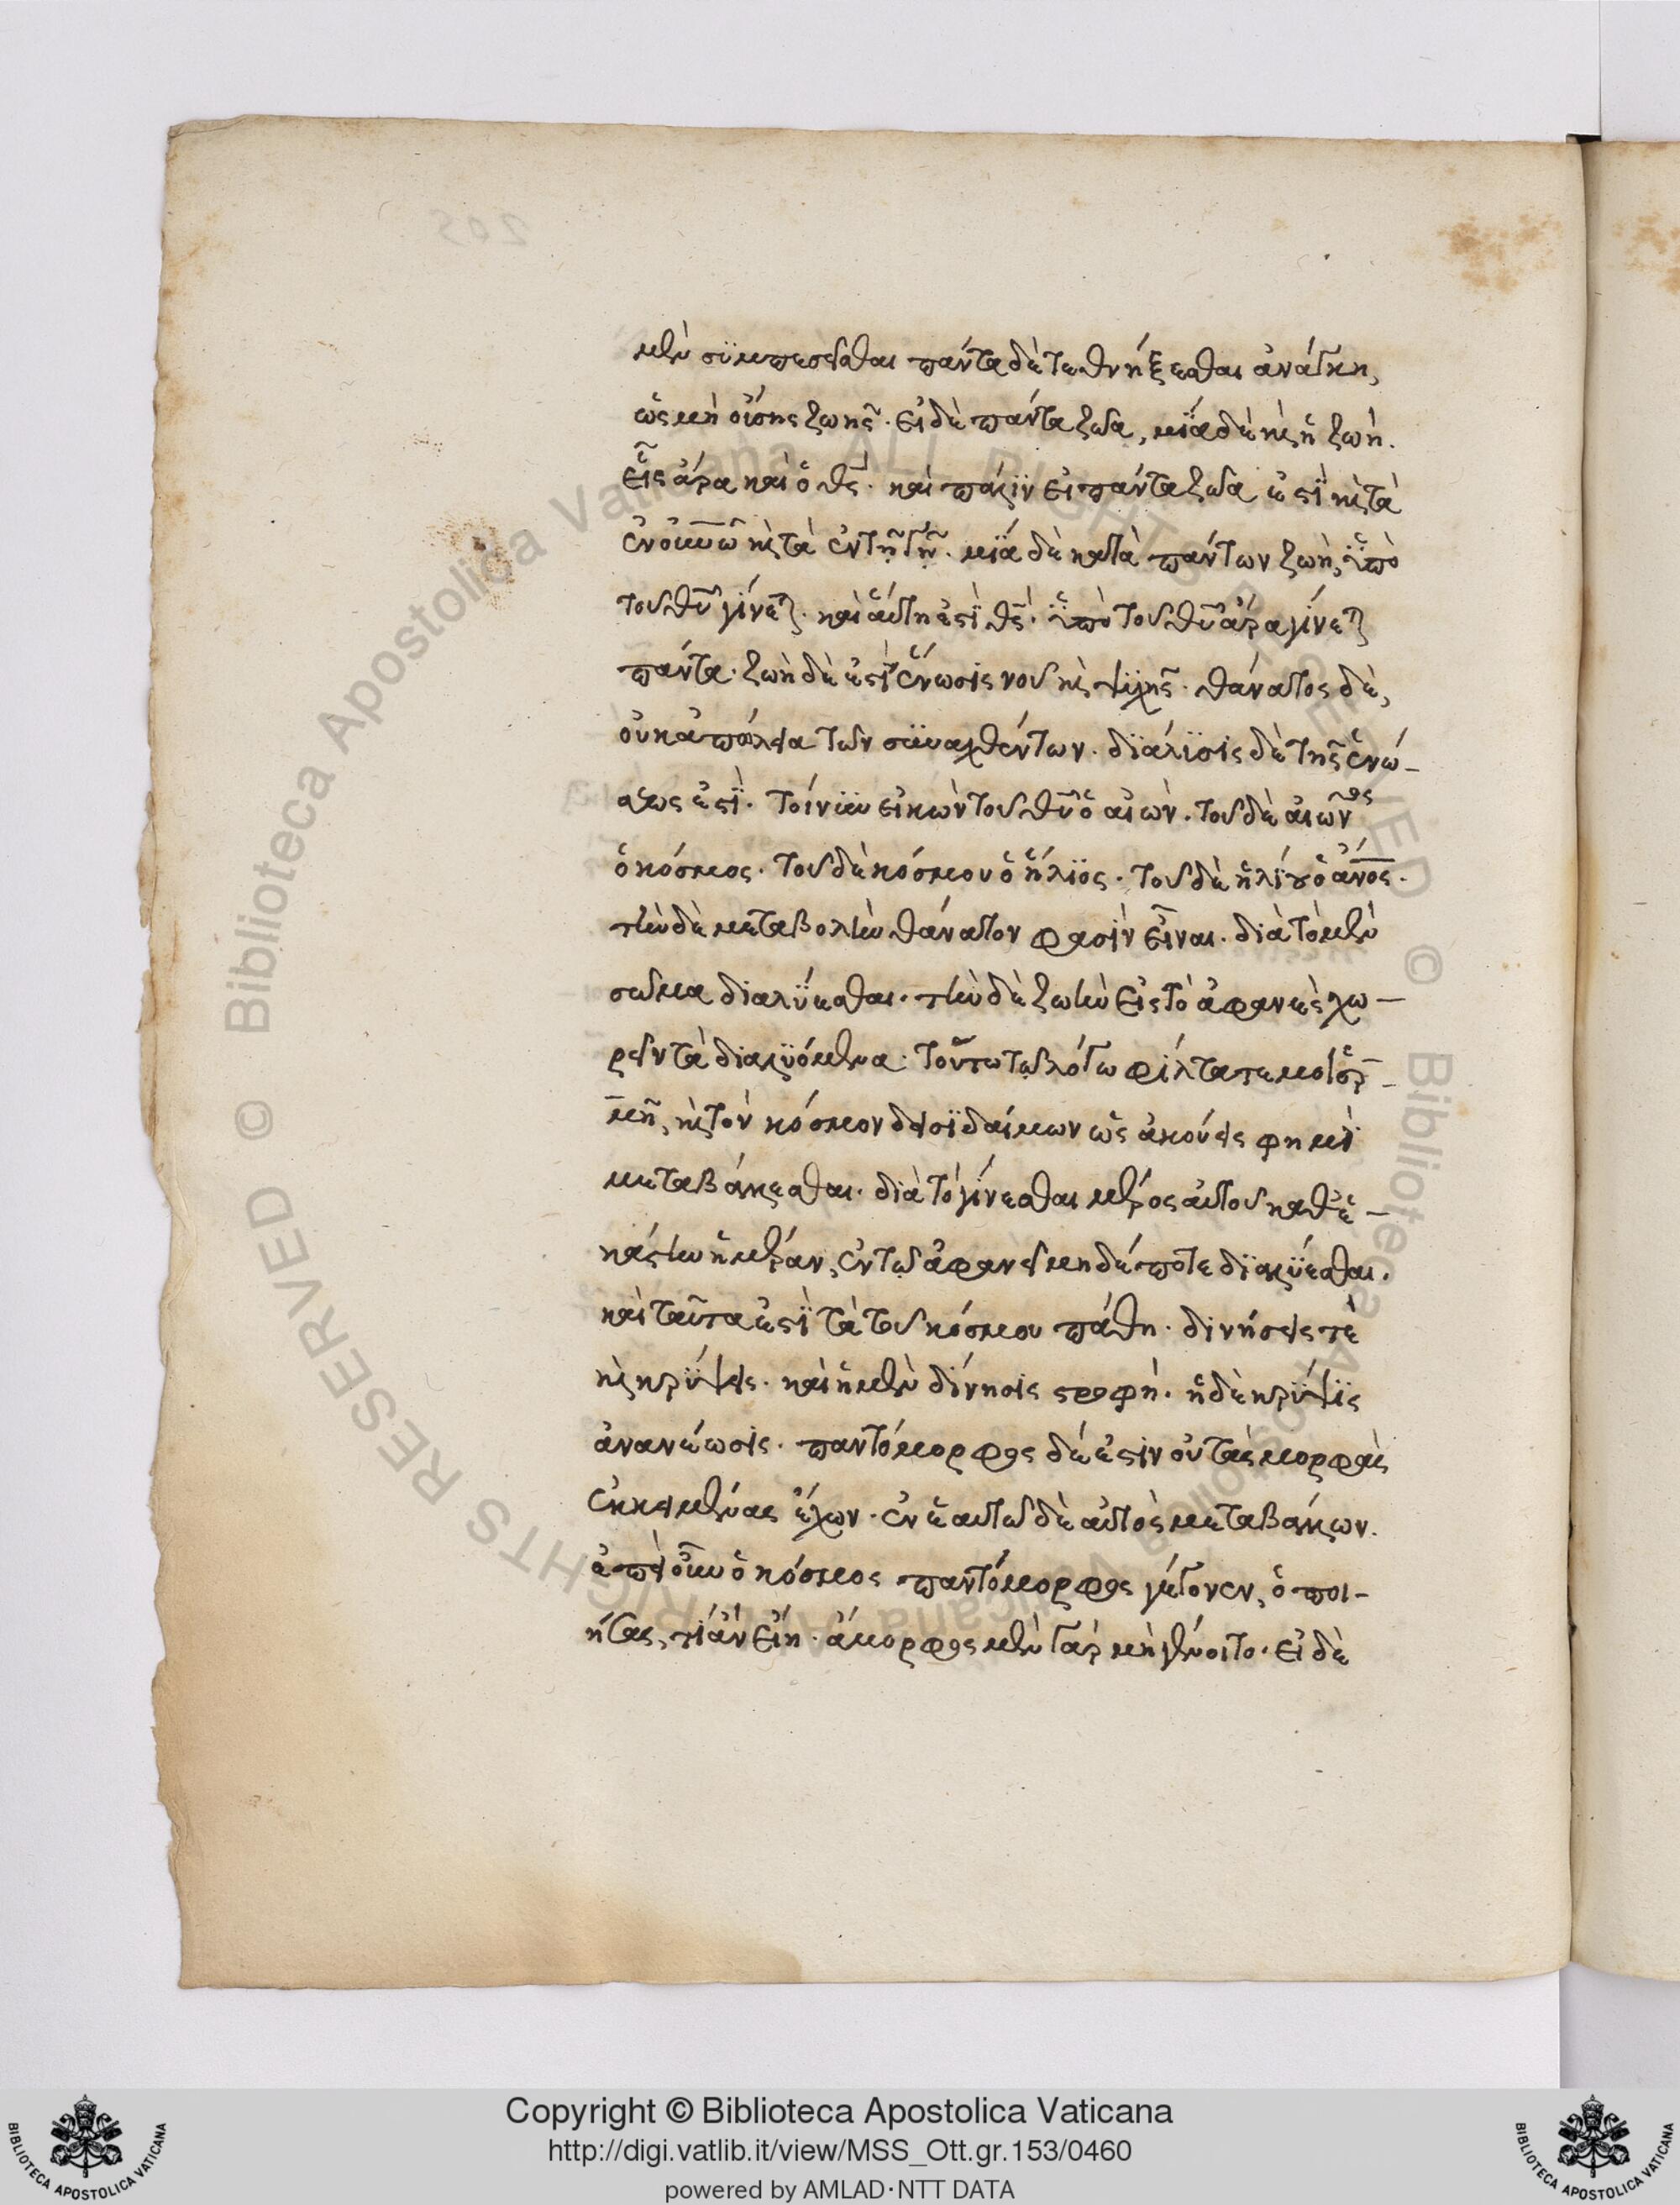 μὲν συμπεσεῖσθαι πάντα δὲ τεθνήξεσθαι ἀνάγκη,
ὡς μὴ οὔσης ζωῆς. εἰ δὲ πάντα ζῶα, μία δὲ κ(αὶ) ἡ ζωή.
εἷς ἄρα καὶ ὁ θς. καὶ πάλιν εἰ πάντα ζῶα ἐστὶ κ(αὶ) τὰ
ἐν οὐνῶ κ(αὶ) τὰ ἐν τῆ γῆ. μία δὲ κατὰ πάντων ζωὴ, ὑπὸ
τοῦ θυ γίνετ(αι). καὶ αὕτη ἐστὶ θς. ὑπὸ τοῦ θυ ἄρα γίνετ(αι)
πάντα. ζωὴ δὲ ἐστὶ ἕνωσις νοῦ κ(αὶ) ψυχῆς. θάνατος δὲ,
οὐκ ἀπώλεια τῶν συναχθέντων. διάλυσις δὲ τῆς ἑνώ-
σεως ἐστὶ. τοίνυν εἰκὼν τοῦ θυ ὁ αἰών. τοῦ δὲ αἰῶνος
ὁ κόσμος. τοῦ δὲ κόσμου ὁ ἥλιος. τοῦ δὲ ἡλίου ὁ ἄνος.
τὴν δὲ μεταβολὴν θάνατον φασὶν εἶναι. διὰ τὸ μὲν
σῶμα διαλύεσθαι. τὴν δὲ ζωὴν εἰς τὸ ἀφανὲς χω-
ρεῖν τὰ διαλυόμενα. τούτω τῶ λόγω φίλτατέ μοι ἑρ-
μῆ, κ(αὶ) τὸν κόσμον δεισιδαίμων ὡς ἀκούεις φημὶ
μεταβάλεσθαι. διὰ τὸ γίνεσθαι μέρος αὐτοῦ καθ' ἑ-
κάστην ἡμέραν, ἐν τῶ ἀφανεῖ μηδέποτε διαλύεσθαι.
καὶ ταῦτα ἐστὶ τὰ τοῦ κόσμου πάθη. δινήσεις τὲ
κ(αὶ) κρύψεις. καὶ ἡ μὲν δίνησις στροφή. ἡ δὲ κρύψις
ἀνανέωσις. παντόμορφος δέ ἐστιν οὐ τὰς μορφὰς
ἐκκειμένας ἔχων. ἐν ἑαυτῶ δὲ αὐτὸς μεταβάλων.
ἐπεὶ οὖν ὁ κόσμος παντόμορφος γέγονεν, ὁ ποι-
ήσας, τί ἂν εἴη. ἄμορφος μὲν γὰρ μὴ γένοιτο. εἰ δὲ
Copyright © Biblioteca Apostolica Vaticana
http://digi.vatlib.it/view/MSS_Ott.gr.153/0460
powered by AMLAD·NTT DATA